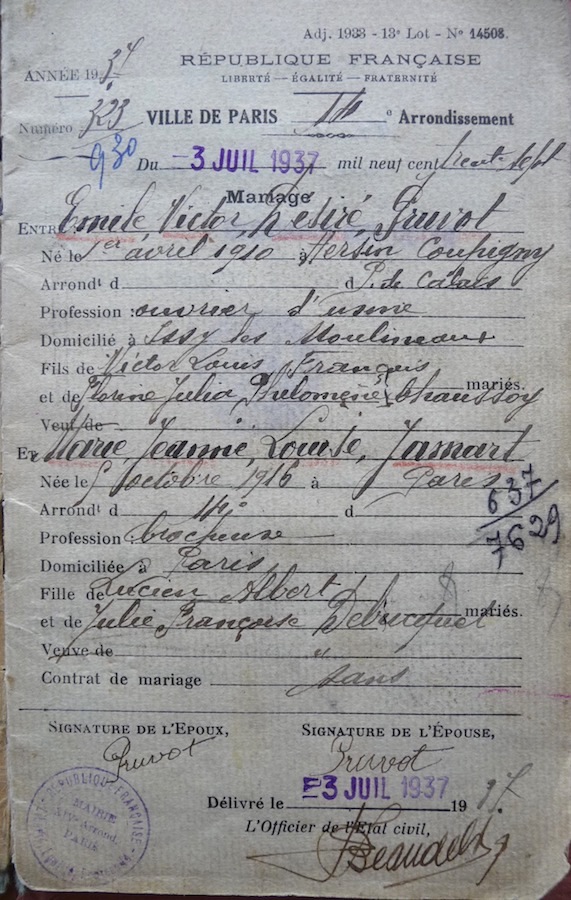 Adj. 1933 - 13e Lot - No 14508.
RÉPUBLIQUE FRANÇAISE
LIBERTÉ — ÉGALITÉ — FRATERNITÉ
ANNÉE 1937
Numéro 323 VILLE DE PARIS e Arrondissement
930 Du 3 JUIL 1937 mil neuf cent trente sept
Mariage
ENTRE Emile Victor Désiré Pruvot
Né le 1er avril 1910 à Hersin Coupigny
Arrondt d d P. de Calais
Profession : ouvrier d'usine
Domicilié à Issy les Moulineaux
Fils de Victor Louis François
et de Florine Julia Philomène Chaussoy mariés.
Veuf de
Et Marie, Jeanne, Louise, Jamart
Née le 5 octobre 1916 à Paris
Arrondt d 14e d
637
7629
Profession brocheuse
Domiciliée à Paris
Fille de Lucien Albert
et de Julie Françoise Debucquet mariés.
Veuve de "
Contrat de mariage sans
SIGNATURE DE L'EPOUX, SIGNATURE DE L'ÉPOUSE,
Pruvot Pruvot
Délivré le 3 JUIL 1937 1937.
L'Officier de l'Etat civil,
RÉPUBLIQUE FRANÇAISE
MAIRIE
Arrond.
PARIS